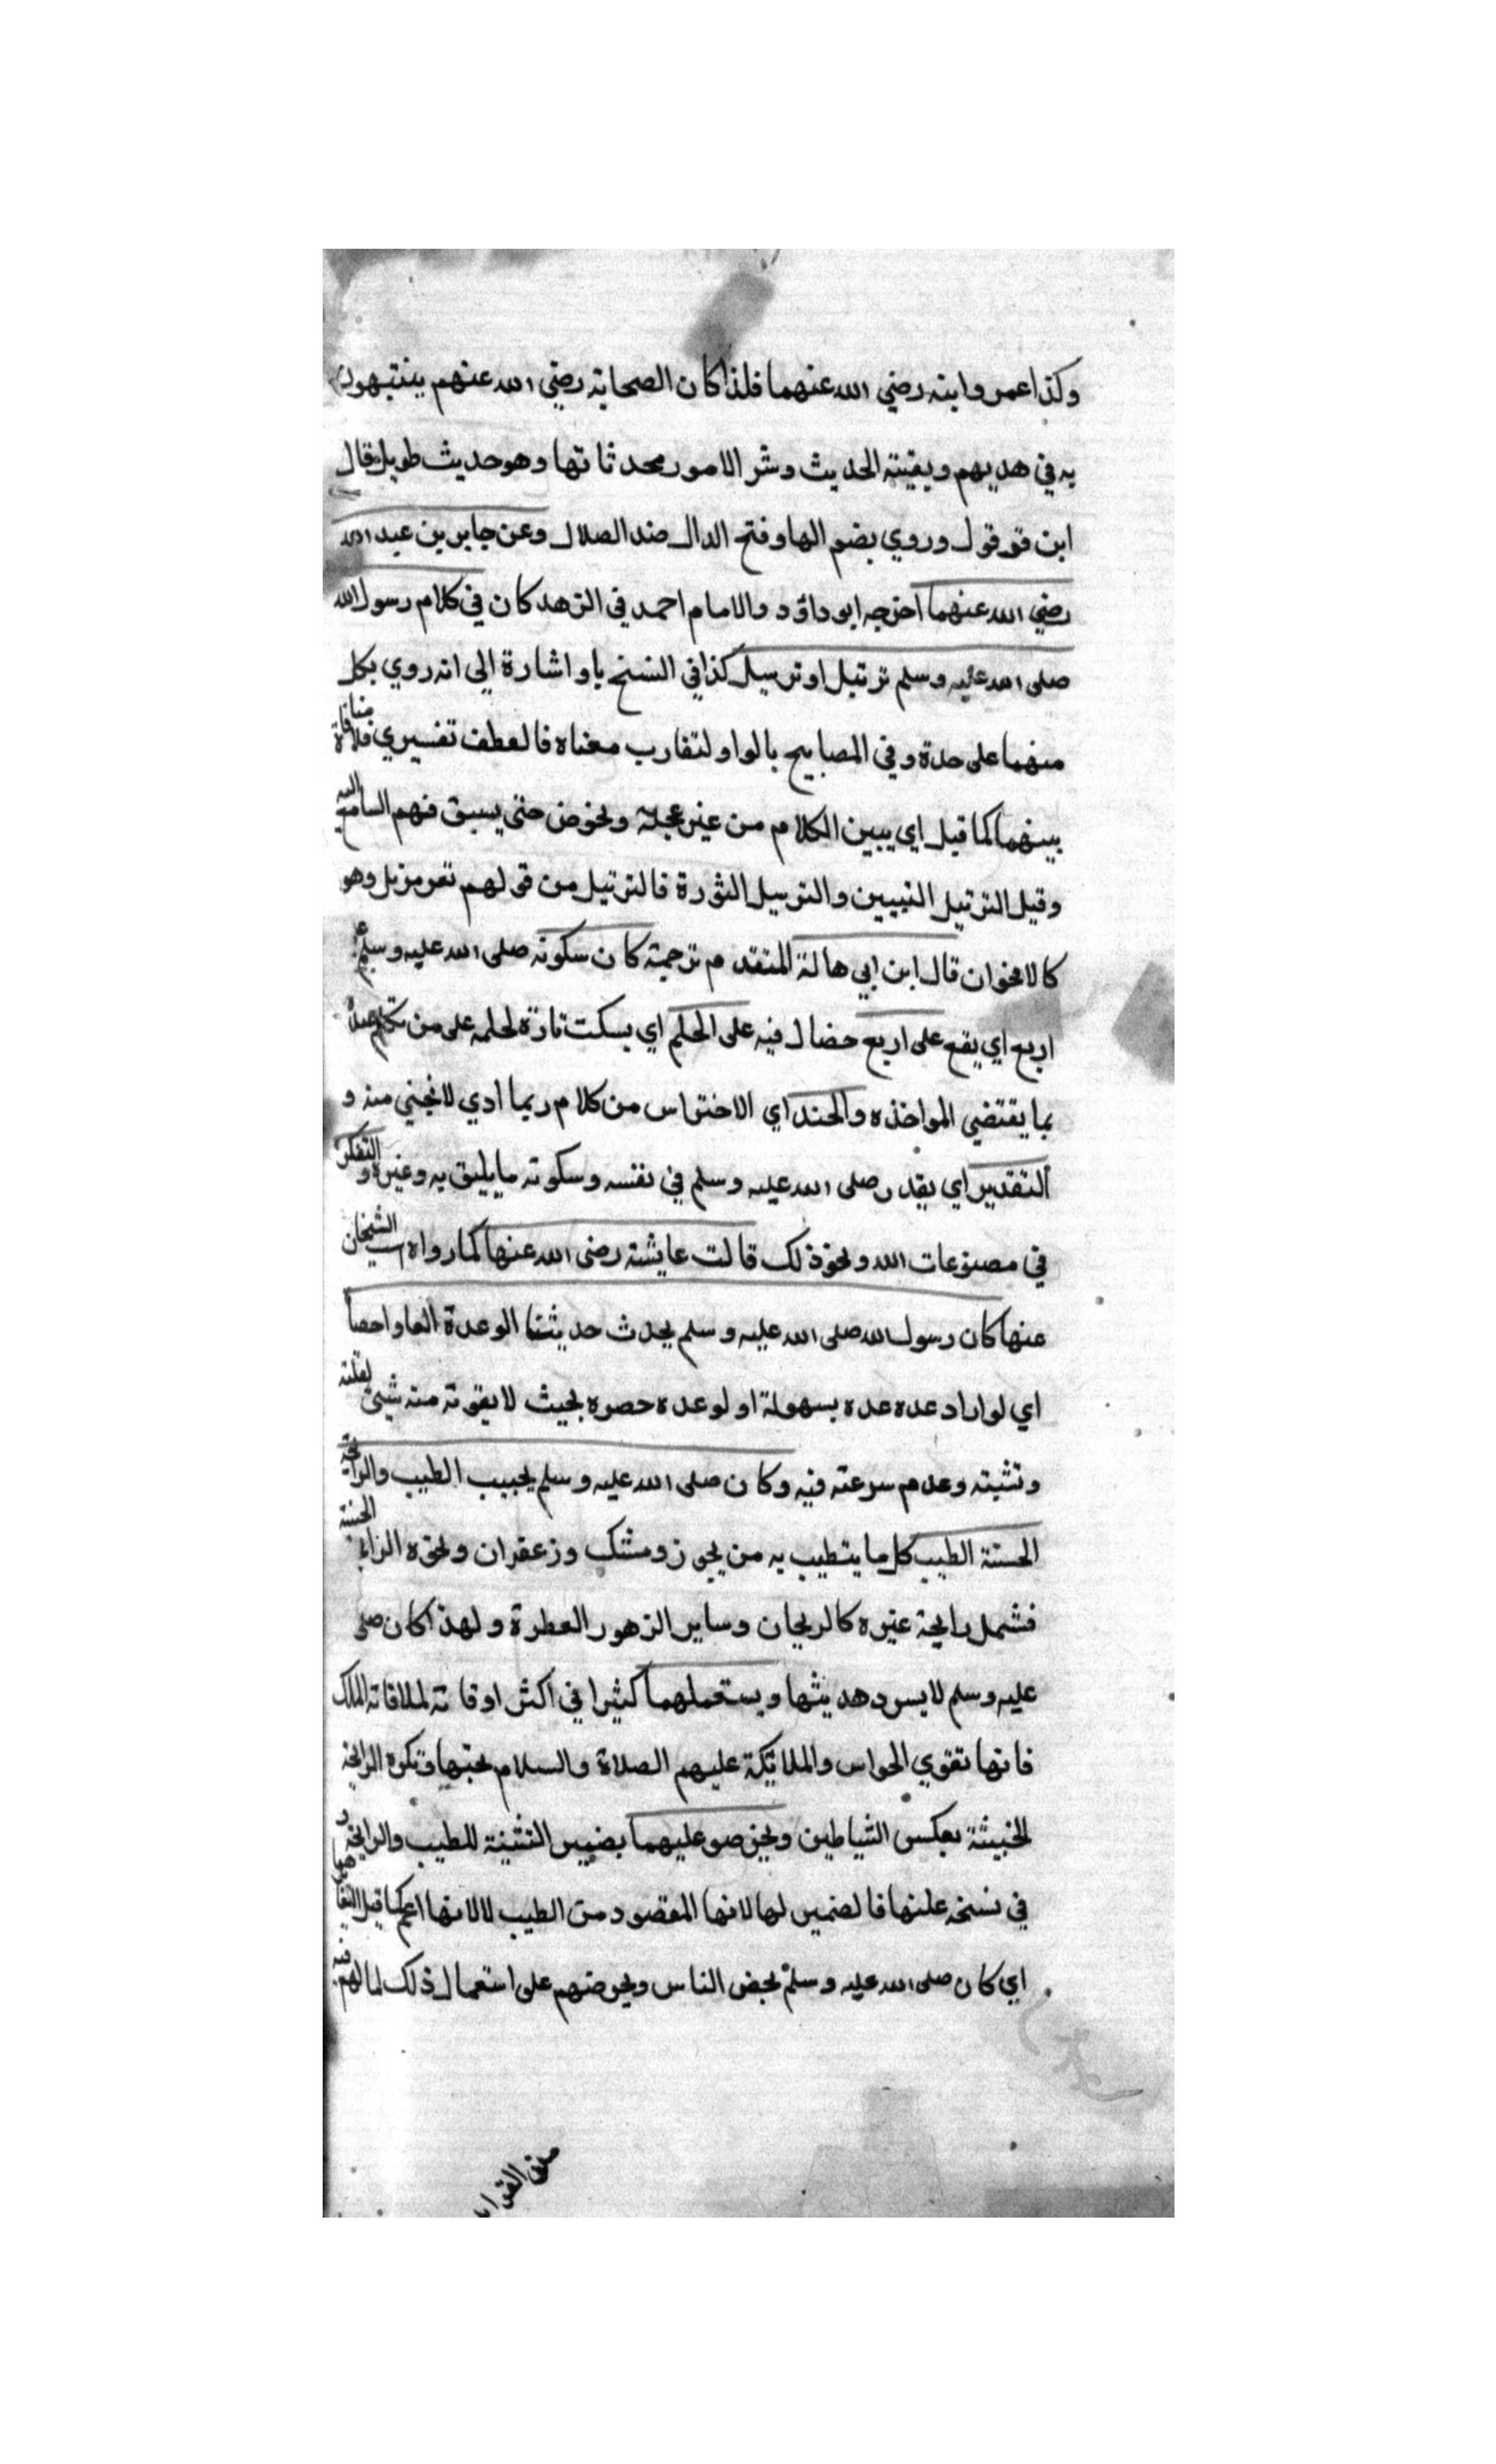 وكذا عمر وابنه رضي الله عنهما فلذا كان الصحابة رضي الله عنهم يتشبهون
به في هديهم وبقيته الحديث وشر الامور محدثاتها وهو حديث طويل قال
ابن قرقول وروي بضم الها وفتح الدال ضد الضلال وعن جابر بن عبد الله
رضي الله عنهما اخرجه ابو داؤد والامام احمد في الزهد كان في كلام رسول الله
صلى الله عليه وسلم ترتيل او ترسيل كذا في النسخ باو اشارة الى انه روي بكل
منهما على حدة وفي المصابيح بالواو لتقارب معناه فالعطف تفسيري فلا منافاة
بينهما كما قيل اي يبين الكلام من غير عجلة ونحوض حتى يسبق فهم السامع اليه
وقيل الترتيل التبيين والترسيل التؤرة فالترتيل من قولهم تغر مرتل وهو
كالامحوان قال ابن ابي هالة المتقدم ترجمته كان سكوته صلى الله عليه وسلم على
اربع اي يقع على اربع خصال فيه على الحلم اي يسكت تارة لحلمه على من تكلم عنده
بما يقتضي المواخذه والحذر اي الاحتراس من كلام ربما ادي لانجني منه و
التقدير اي يقدر صلى الله عليه وسلم في نفسه وسكوته ما يليق به وغيره والتفكر
في مصنوعات الله ونحو ذلك قالت عايشة رضي الله عنها كما رواه الشيخان
عنها كان رسول الله صلى الله عليه وسلم يحدث حديثا لوعدة العاد احصا
اي لو اراد عده عده بسهولة او لو عده حصره بحيث لا يفوته منه شيئ لقلته
وتثبته وعدم سرعته فيه وكان صلى الله عليه وسلم يحبب الطيب والرايحة
الحسنة الطيب كل ما يتطيب به من بخور ومسك وزعفران ونحوه الرايحة الحسنة
فشمل رايحة غيره كالريحان وساير الزهور العطرة ولهذا كان صلى
عليه وسلم لا يرد هديتها ويستعملهما كثيرا في اكثر اوقاته لملاقاته الملك
فانها تقوي الحواس والملائكة عليهم الصلاة والسلام تحبها وتكره الرايحة
الخبيثة بعكس الشياطين ويحرض عليهما بضمير التثنية للطيب والرايحة و
في نسخه عليها فالضمير لها لانها المقصود من الطيب لا لانها اعم كما قيل
اي كان صلى الله عليه وسلم يحض الناس ويحرضهم على استعمال ذلك لما لهم فيه